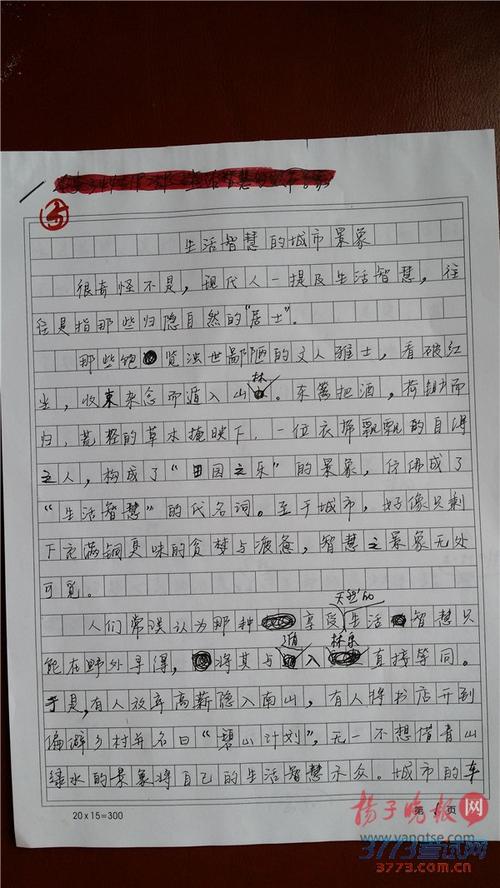 生活智慧的城市景象
很奇怪不是，现代人一提及生活智慧，往
往是指那些归隐自然的“居士”。
那些饱览浊世鄙陋的文人雅士，看破红
尘，收束杂念而遁入山林。东篱把酒，荷锄而
归，荒径的草木掩映下，一位衣带飘飘的自得
之人，构成了“田园之乐”的景象，仿佛成了
“生活智慧”的代名词。至于城市，好像只剩
下充满铜臭味的贪婪与疲惫，智慧之景象无处
可觅。
人们常误认为那种享受天然的生活智慧只
能在野外寻得，将其与遁入林乐直接等同。
于是，有人放弃高薪隐入南山，有人将书店开到
偏僻乡村并名曰“碧山计划”，无一不想借青山
绿水的景象将自己的生活智慧示众。城市的车
20×15=300
第1页
扬子晚报网
www.yangtse.com
3773考试网
3773.com.cn